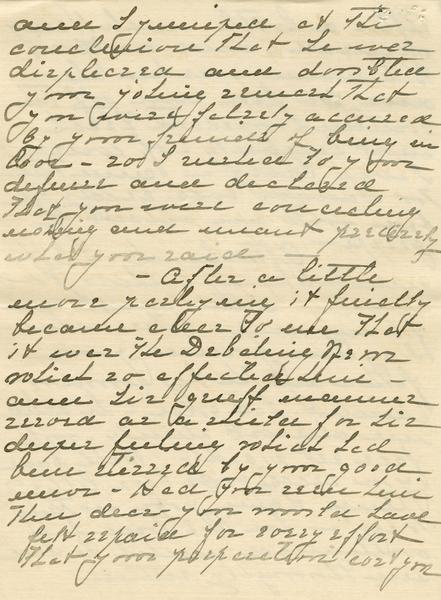 and I jumped at the
conclusion that he was
displeased and doubted
your joking remark that
you were falsely accused
by your friends of being in
love - so I rushed to your
defense and declared
that you were concealing
nothing and meant precisely
what you said -
- After a little
more parleying it finally
became clear to me that
it was the Debating News
which so affected him -
and his gruff manner
served as a shield for his
deeper feeling which had
been stirred by your good
news - Had you seen him
then dear you would have
felt repaid for every effort
that your preparation cost you